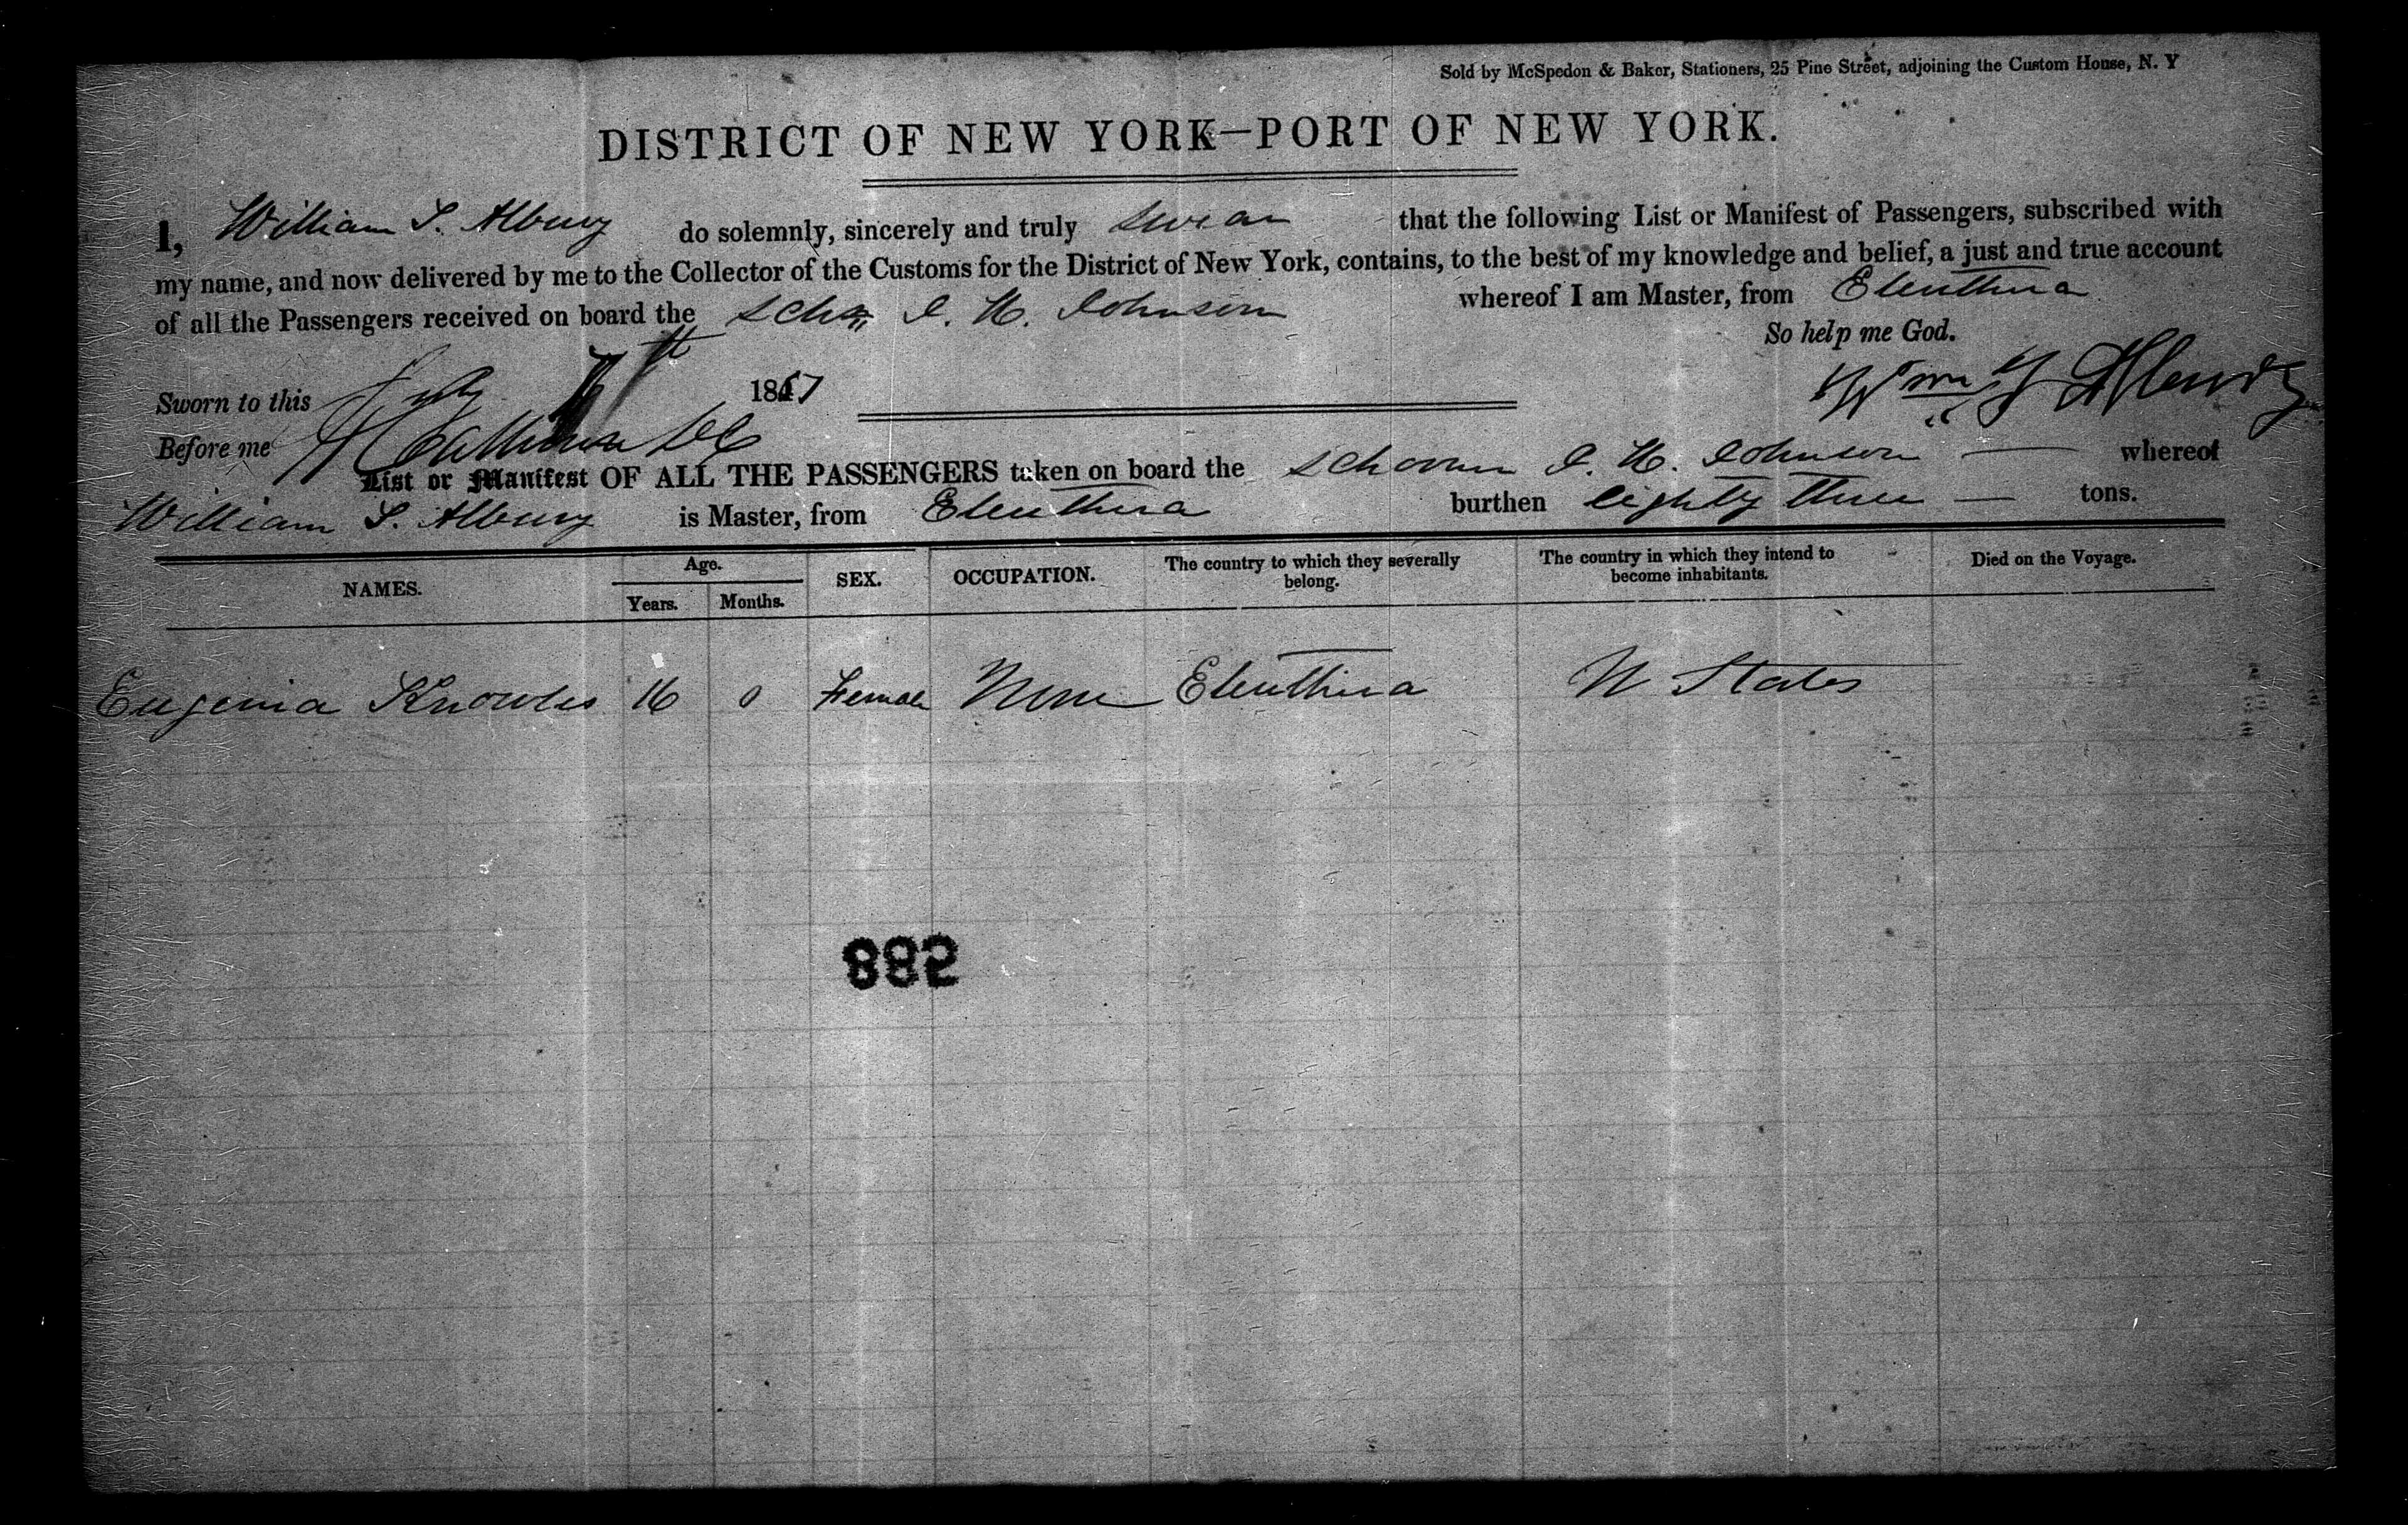 Sold by McSpedon & Baker, Stationers, 25 Pine Street, adjoining the Custom House, N. Y
DISTRICT OF NEW YORK—PORT OF NEW YORK.
I, William S. Albury do solemnly, sincerely and truly swear that the following List or Manifest of Passengers, subscribed with
my name, and now delivered by me to the Collector of the Customs for the District of New York, contains, to the best of my knowledge and belief, a just and true account
of all the Passengers received on board the Schr J. H. Johnson whereof I am Master, from Eleuthera
So help me God.
Sworn to this July 7th 1857
Wm Albury
Before me
List or Manifest OF ALL THE PASSENGERS taken on board the Schooner J. H. Johnson — whereof
William S. Albury is Master, from Eleuthera burthen eighty three — tons.
NAMES. Age. Years. Months. SEX. OCCUPATION. The country to which they severally belong. The country in which they intend to become inhabitants. Died on the Voyage.
Eugenia Knowles 16 0 Female None Eleuthera U States
882